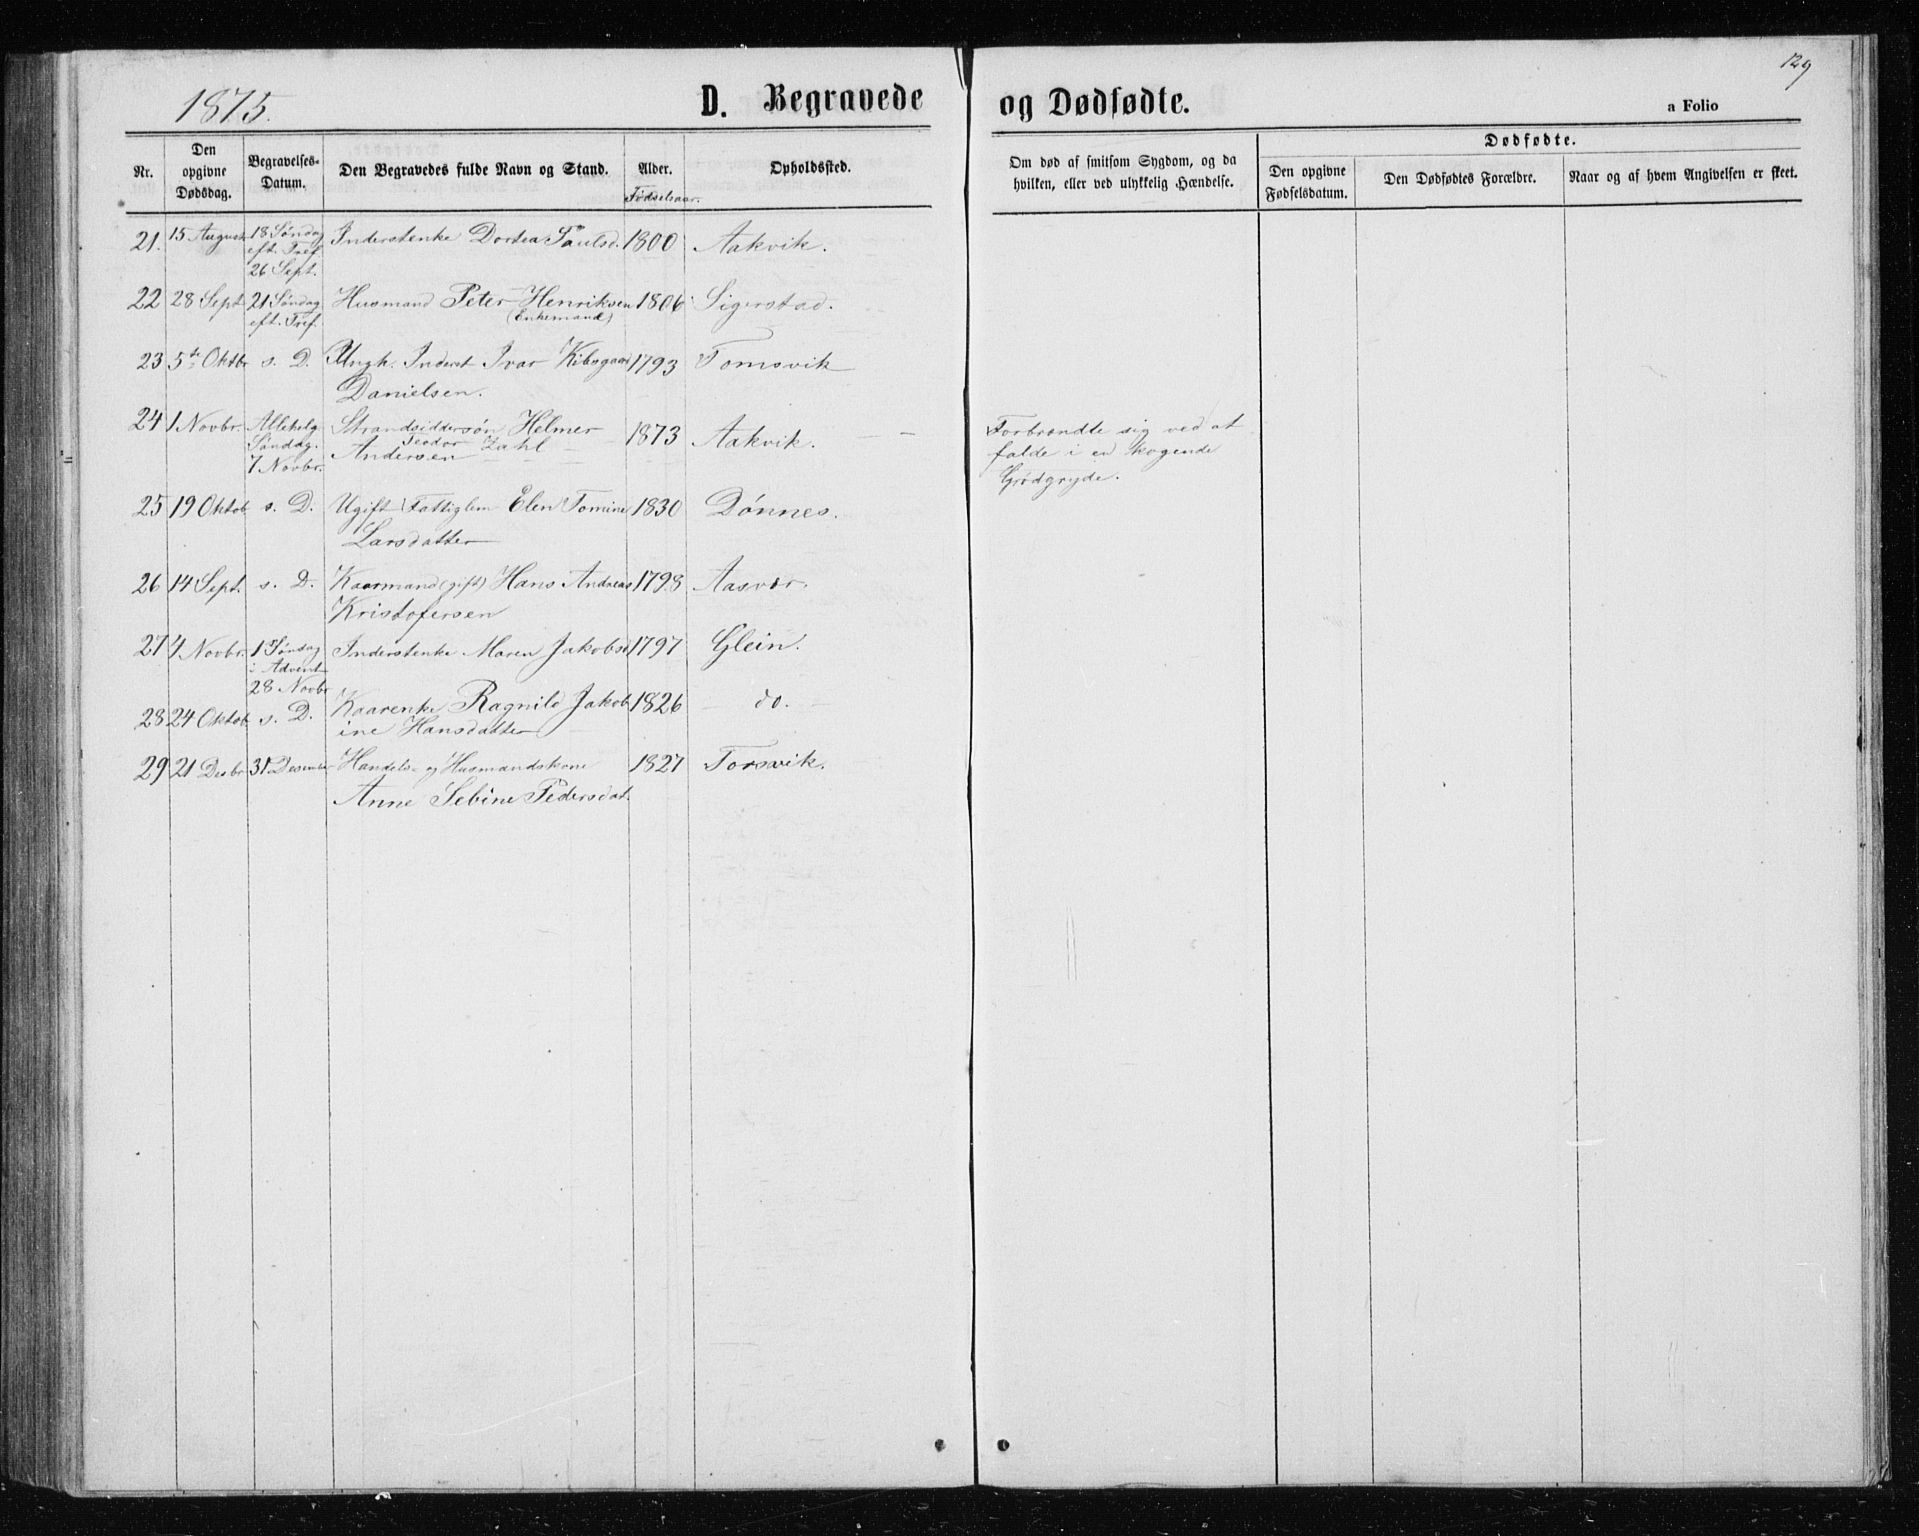 1875.
D. Begravede og Dødfødte.
a Folio
129
Nr.
Den opgivne Dødsdag.
Begravelses-Datum.
Den Begravedes fulde Navn og Stand.
Alder.
Fødselsaar.
Opholdssted.
Om død af smitsom Sygdom, og da hvilken, eller ved ulykkelig Hændelse.
Dødfødte.
Den opgivne Fødselsdatum.
Den Dødfødtes Forældre.
Naar og af hvem Angivelsen er skeet.
21. 15 August 18 Søndag Inderstenke Dortea Paulsd. 1800 Aakvik.
eft. Tref.
26 Sept.
22 28 Sept. 21 Søndag Husmand Peter Henriksen 1806 Sigerstad.
eft. Tref. (Enkemand)
23 5te Oktbr s. D. Ungk. Inderst Ivar Kibsgaar 1793 Tomsvik
Danielsen.
24 1 Novbr. Allehelg. Strandsiddersøn Helmer 1873 Aakvik. Forbrændte sig ved at
Søndag. Andersen Teodor Zahl falde i en kogende
7 Novbr. Grødgryde.
25 19 Oktob s. D. Ugift Fattiglem Elen Tomine 1830 Dønnes.
Larsdatter
26 14 Sept. s. D. Kaarmand (gift) Hans Andreas 1798 Aasvær.
Kristofersen
27 4 Novbr. 1 Søndag Inderstenke Maren Jakobsd 1797 Glein.
i Advent
28 Novbr
28 24 Oktob s. D. Kaarenke Ragnild Jakob 1826 do.
ine Hansdatter
29 21 Desbr 31 Desember Handels- og Husmandskone 1827 Forsvik.
Anne Sebine Pedersdat.